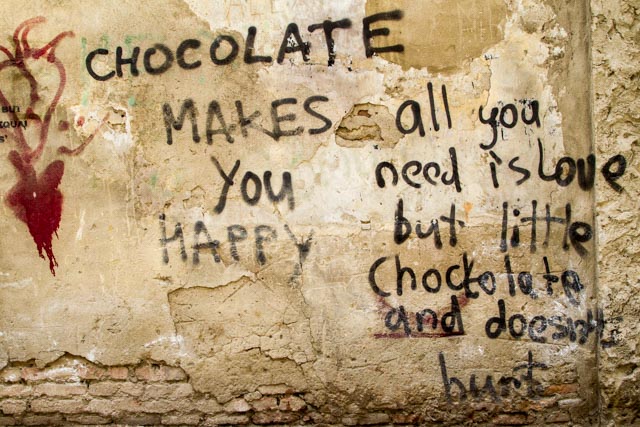 BUT
CHOCOLATE
MAKES
YOU
HAPPY
all you
need is Love
but little
Chockolate
and doesnt
hurt